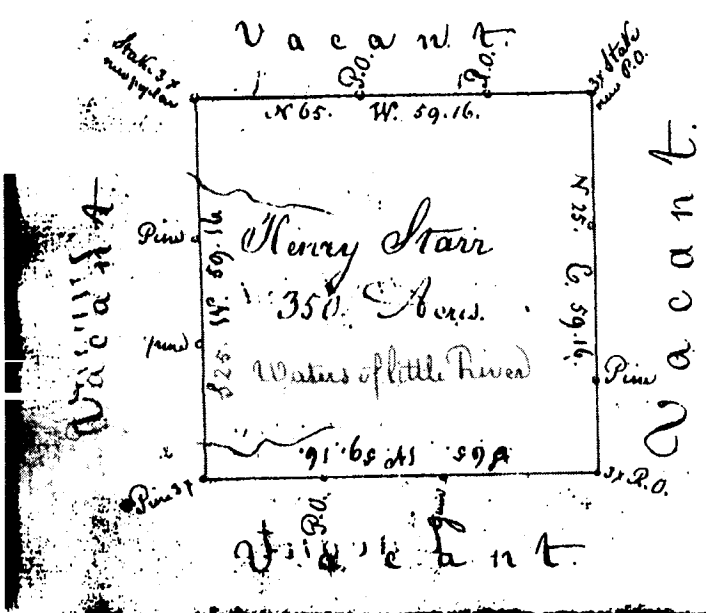 Vacant.
Stake 3x
new poplar
P.O.
P.O.
3x Stake
new P.O.
N 65. W. 59.16.
Vacant.
Pine
pine
S 25. W. 59.16
Henry Starr
350. Acres.
Waters of little River
N 25. E. 59.16.
Pine
Vacant.
59.16.
Pine 3x
P.O.
3x P.O.
Vacant.